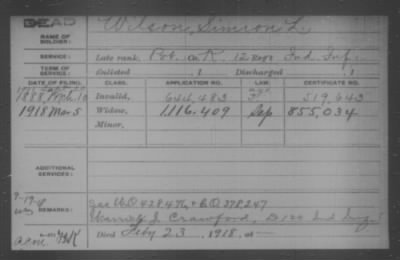 DEAD
Wilson, Simeon L.
NAME OF SOLDIER:
SERVICE: Late rank, Pvt. Co. K, 12 Regt Ind Inf.
TERM OF SERVICE: Enlisted , 1 Discharged , 1
DATE OF FILING. CLASS. APPLICATION NO. LAW. CERTIFICATE NO.
1888 10 Invalid, 644,483 519,643
1918 Mar 5 Widow, 1,116,409 Sep 855,034
Minor,
ADDITIONAL SERVICES:
REMARKS: See WO 428476 + CO 278247
J. Crawford, D 100 Ind Inf
Died Feby 23 1918, at —